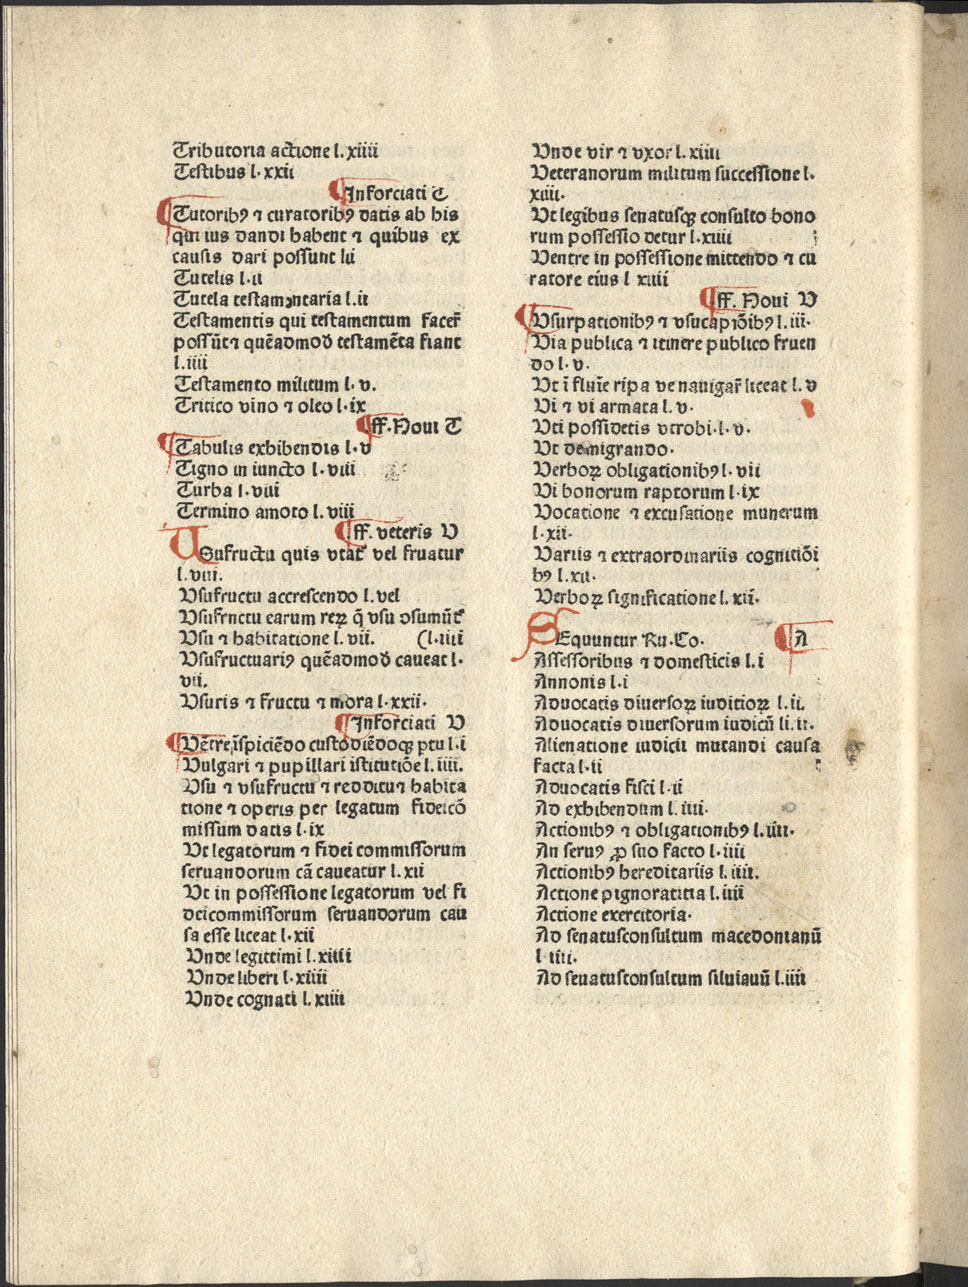 Tributoria actione l. xiiii
Testibus l. xxii
¶ Inforciati T
¶ Tutoribꝰ ⁊ curatoribꝰ datis ab his
qui ius dandi habent ⁊ quibus ex
causis dari possunt lii
Tutelis l. ii
Tutela testamɔntaria l. ii
Testamentis qui testamentum facer̄
possūt ⁊ quēadmoꝺ̄ testamēta fiant
l. iiii
Testamento militum l. v.
Tritico vino ⁊ oleo l. ix
¶ ff. Noui T
¶ Tabulis exhibendis l. v
Tigno in iuncto l. viii
Turba l. viii
Termino amoto l. viii
¶ ff. veteris V
USufructu quis vtat᷑ vel fruatur
l. viii.
Vsufructu accrescendo l. vel
Vsufrnctu earum reꝝ q̄ vsu ɔsumūt᷑
Vsu ⁊ habitatione l. vii. (l. iiii
Vsufructuariꝰ quēadmoꝺ̄ caueat l.
vii.
Vsuris ⁊ fructu ⁊ mora l. xxii.
¶ Inforciati V
¶ Vētre īspiciēdo custodiēdoqꝫ ꝑtu l. i
Vulgari ⁊ pupillari īstitutiōe l. iiii.
Vsu ⁊ vsufructu ⁊ redditu ⁊ habita
tione ⁊ operis per legatum fideicō
missum datis l. ix
Vt legatorum ⁊ fidei commissorum
seruandorum cā caueatur l. xii
Vt in possessione legatorum vel fi
deicommissorum seruandorum cau
sa esse liceat l. xii
Vnde legittimi l. xiiii
Vnde liberi l. xiiii
Vnde cognati l. xiiii
Vnde vir ⁊ vxor l. xiiii
Veteranorum militum successione l.
xiiii.
Vt legibus senatusqꝫ consulto bono
rum possessio detur l. xiiii
Ventre in possessione mittendo ⁊ cu
ratore eius l xiiii
¶ ff. Noui V
¶ Vsurpationibꝰ ⁊ vsucapiōibꝰ l. iii.
Via publica ⁊ itinere publico fruen
do l. v.
Vt ī fluīe ripa ve nauigar̄ liceat l. v
Vi ⁊ vi armata l. v.
Vti possidetis vtrobi. l. v.
Vt demigrando.
Verboꝝ obligationibꝰ l. vii
Vi bonorum raptorum l. ix
Vocatione ⁊ excusatione munerum
l. xii.
Variis ⁊ extraordinariis cognitiōi
bꝰ l. xii.
Verboꝝ significatione l. xii.
SEquuntur Ru. Co. ¶ A
Assessoribus ⁊ domesticis l. i
Annonis l. i
Aduocatis diuersoꝝ iuditioꝝ l. ii.
Aduocatis diuersorum iudicū li. ii.
Alienatione iudicii mutandi causa
facta l. ii
Aduocatis fisci l. ii
Ad exhibendum l. iiii.
Actionibꝰ ⁊ obligationibꝰ l. iiii.
An seruꝰ ꝓ suo facto l. iiii
Actionibꝰ hereditariis l. iiii.
Actione pignoratitia l. iiii
Actione exercitoria.
Ad senatusconsultum macedonianū
l iiii.
Ad seuatusconsultum siluiauū l. iiii